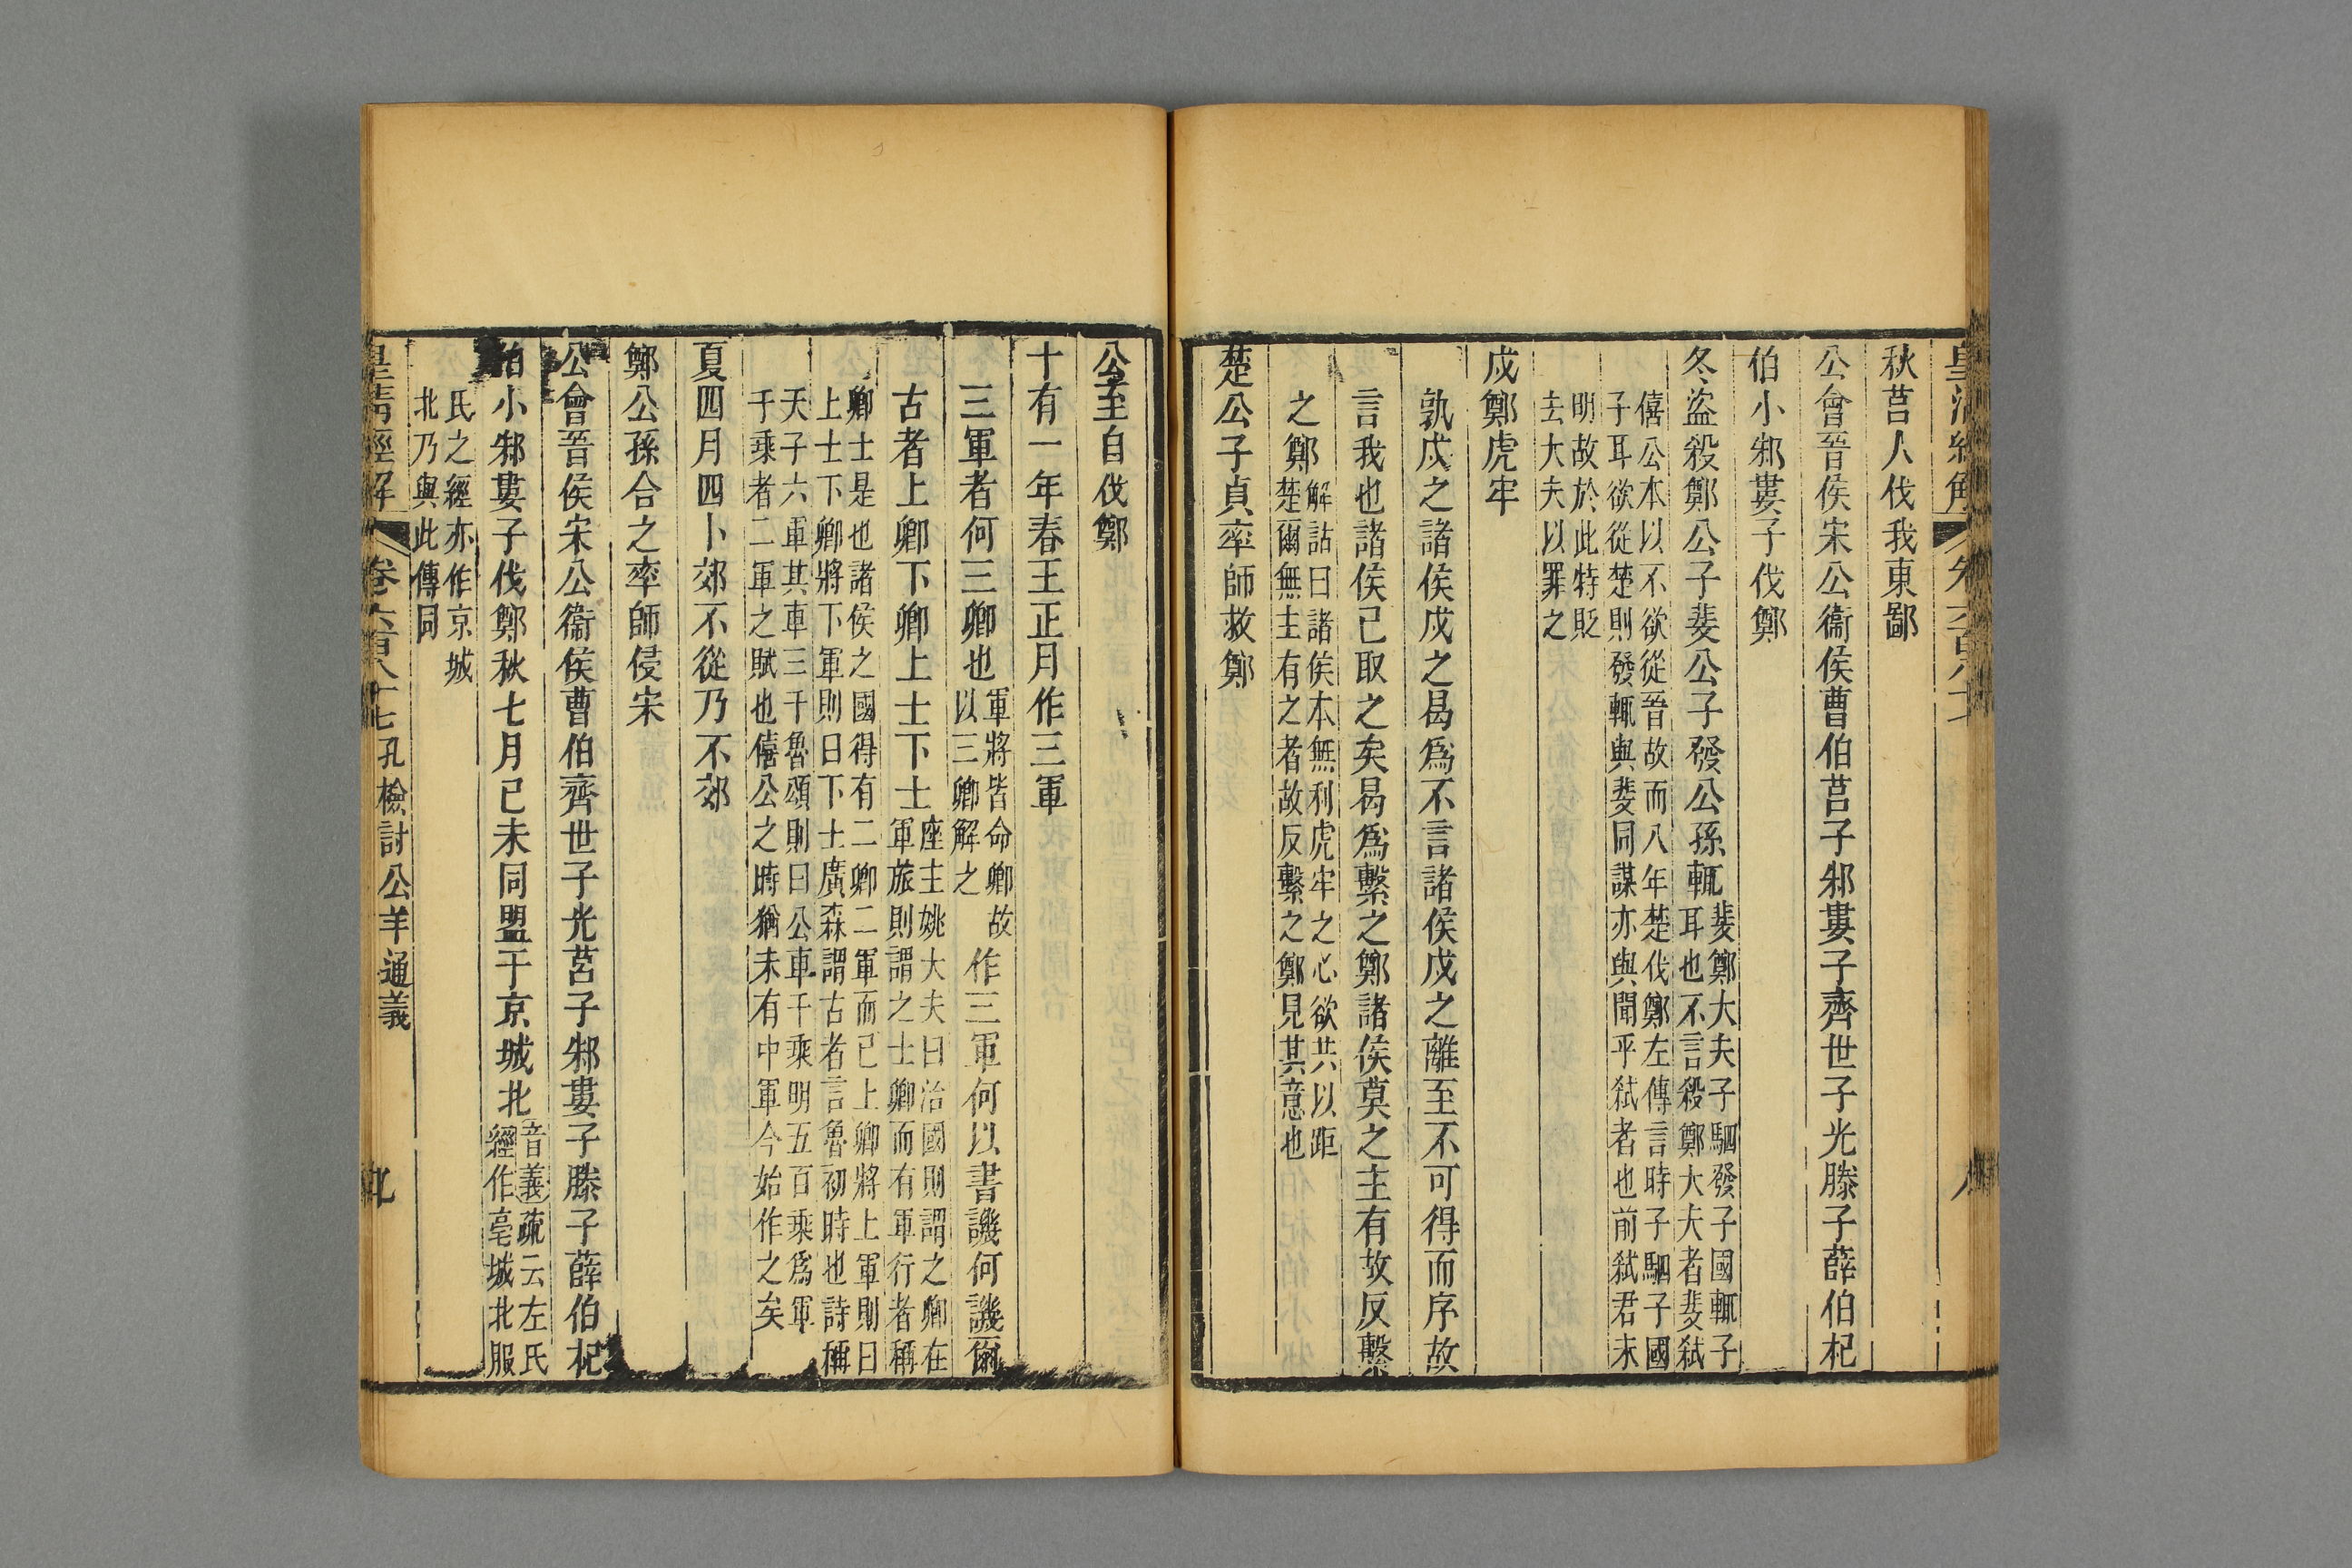 秋莒人伐我東鄙
公會晉侯宋公衞侯曹伯莒子邾婁子齊世子光滕子薛伯杞
伯小邾婁子伐鄭
冬盜殺鄭公子斐公子發公孫輒
斐鄭大夫子駟發子國輒子
耳也不言殺鄭大夫者斐弑
僖公本以不欲從晉故而八年楚伐鄭左傳言時子駟子國
子耳欲從楚則發輒與斐同謀亦與聞乎弑者也前弑君未
明故於此特貶
去大夫以罪之
戍鄭虎牢
孰戍之諸侯戍之曷爲不言諸侯戍之離至不可得而序故
言我也諸侯已取之矣曷爲繫之鄭諸侯莫之主有故反繫
之鄭
解詁曰諸侯本無利虎牢之心欲共以距
楚爾無主有之者故反繫之鄭見其意也
楚公子貞率師救鄭
公至自伐鄭
十有一年春王正月作三軍
三軍者何三卿也
軍將皆命卿故
以三卿解之
作三軍何以書譏何譏爾
古者上卿下卿上士下士
座主姚大夫曰治國則謂之卿在
軍旅則謂之士卿而有軍行者稱
卿士是也諸侯之國得有二卿二軍而已上卿將上軍則曰
上士下卿將下軍則曰下士廣森謂古者言魯初時也詩稱
天子六軍其車三千魯頌則曰公車千乘明五百乘爲軍
千乘者二軍之賦也僖公之時猶未有中軍今始作之矣
夏四月四卜郊不從乃不郊
鄭公孫合之率師侵宋
公會晉侯宋公衞侯曹伯齊世子光莒子邾婁子滕子薛伯杞
伯小邾婁子伐鄭秋七月己未同盟于京城北
音義疏云左氏
經作亳城北服
氏之經亦作京城
北乃與此傳同
皇清經解
卷六百八十七
孔檢討公羊通義
九